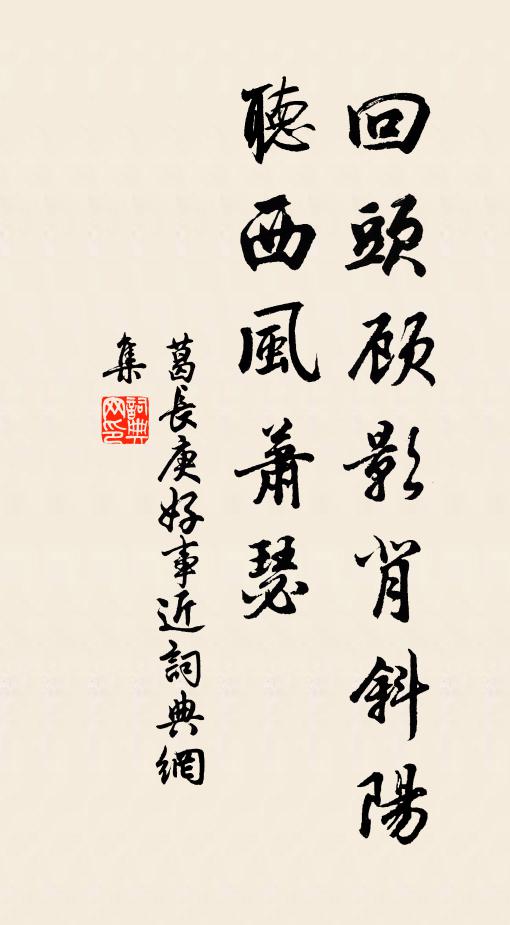 回頭顧影背斜陽
聽西風蕭瑟
葛長庚好事近詞典網
集
詞典
网印